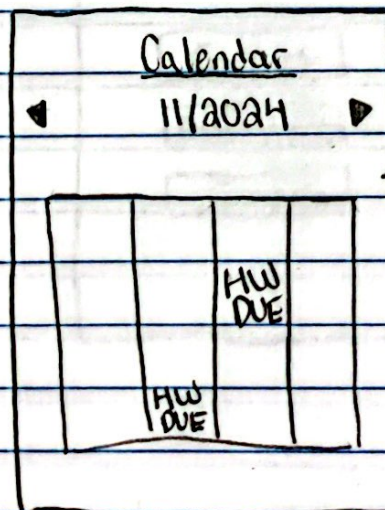 Calendar
11/2024
HW
DUE
HW
DUE